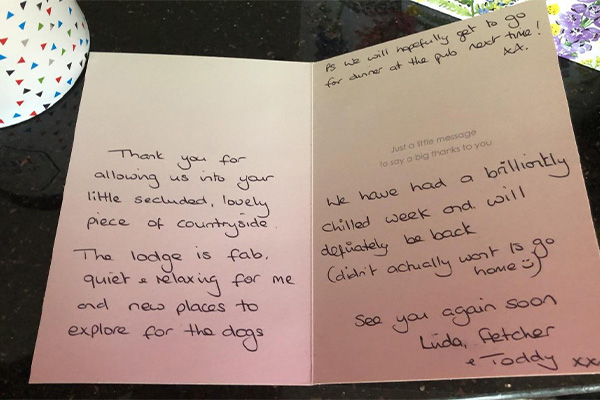 Thank you for
allowing us into your
little secluded, lovely
piece of countryside.
The lodge is fab,
quiet & relaxing for me
and new places to
explore for the dogs
As we will hopefully get to go
for dinner at the pub next time!
xx.
Just a little message
to say a big thanks to you
We have had a brilliantly
chilled week and will
definately be back
(didn't actually want to go
home ☺)
See you again soon
Linda, Fletcher
& Toddy xx